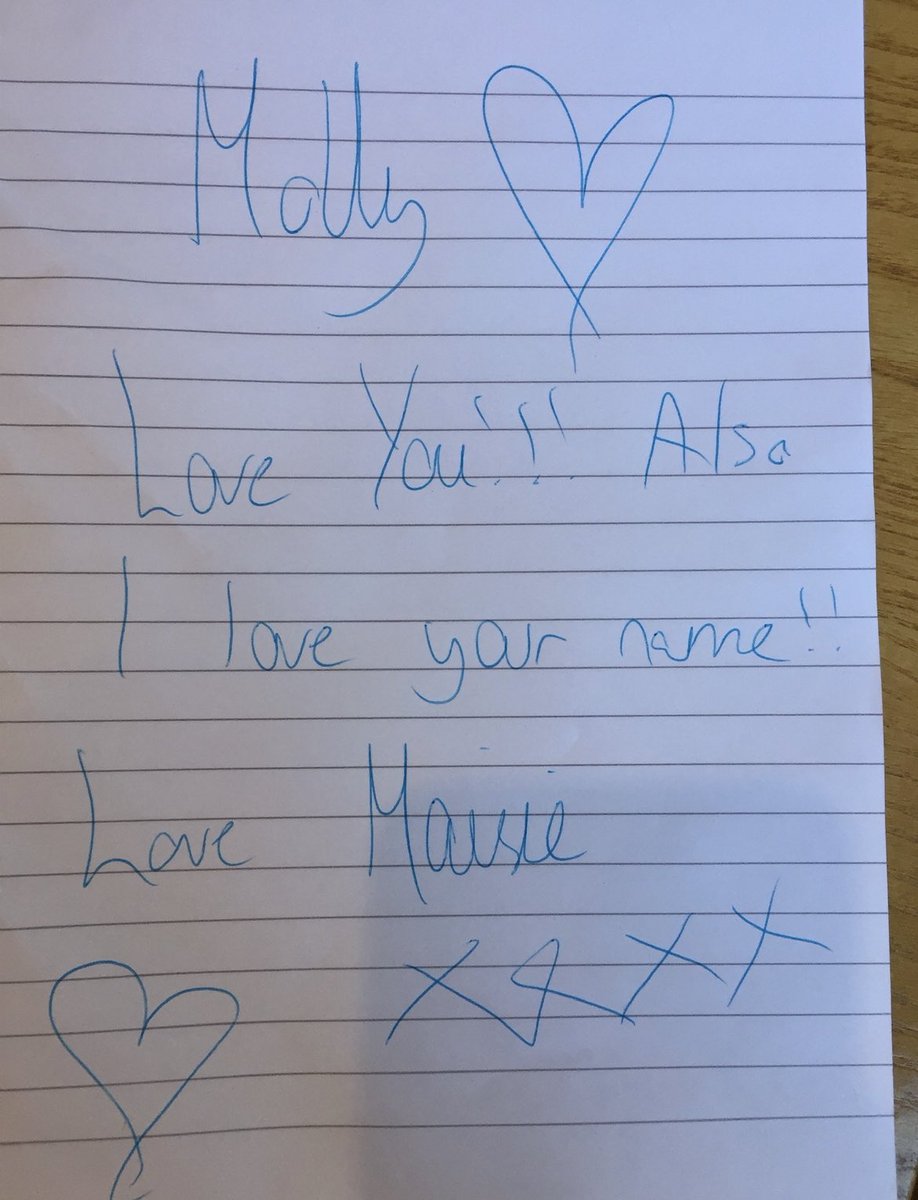 Molly
Love You!!! Also
I love your name!!
Love Maisie
xxxx